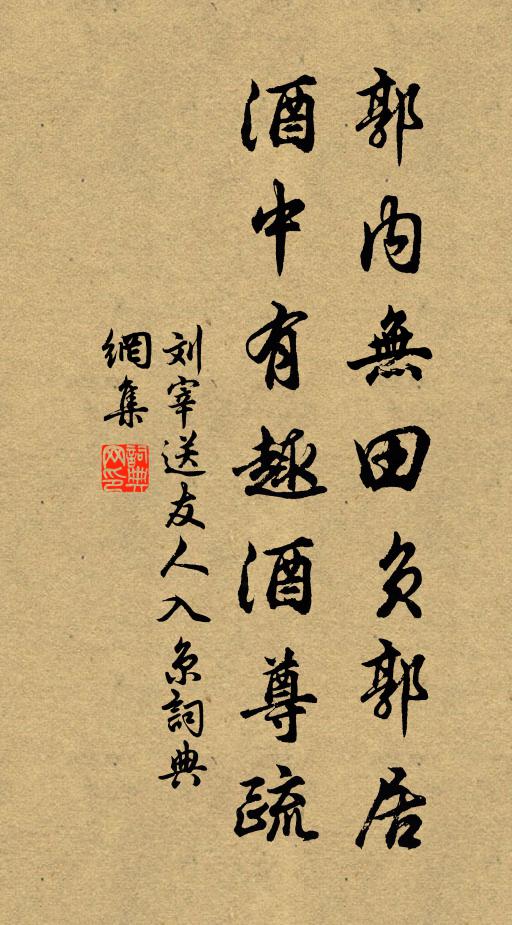 郭内無田負郭居
酒中有趣酒尊疏
刘宰送友人入京詞典
網集
詞典
网印